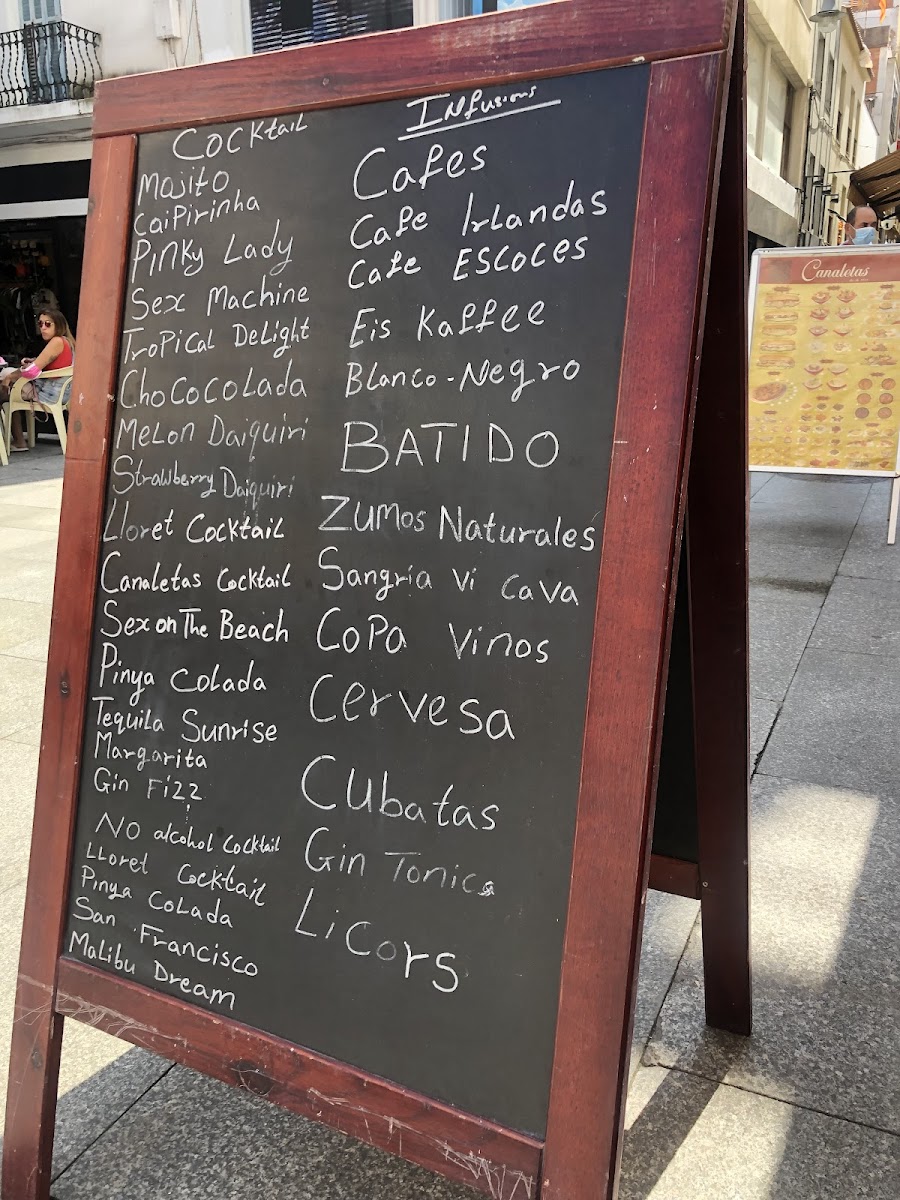 Cocktail
Mojito
Caipirinha
Pinky Lady
Sex Machine
Tropical Delight
Chococolada
Melon Daiquiri
Strawberry Daiquiri
Lloret Cocktail
Canaletas Cocktail
Sex on The Beach
Pinya Colada
Tequila Sunrise
Margarita
Gin Fizz
No alcohol cocktail
Lloret Cocktail
Pinya Colada
San Francisco
Malibu Dream
Infusions
Cafes
Cafe Irlandas
Cafe Escoces
Eis Kaffee
Blanco-Negro
BATIDO
Zumos Naturales
Sangria Vi cava
Copa Vinos
Cervesa
Cubatas
Gin Tonics
Licors
Canaletas